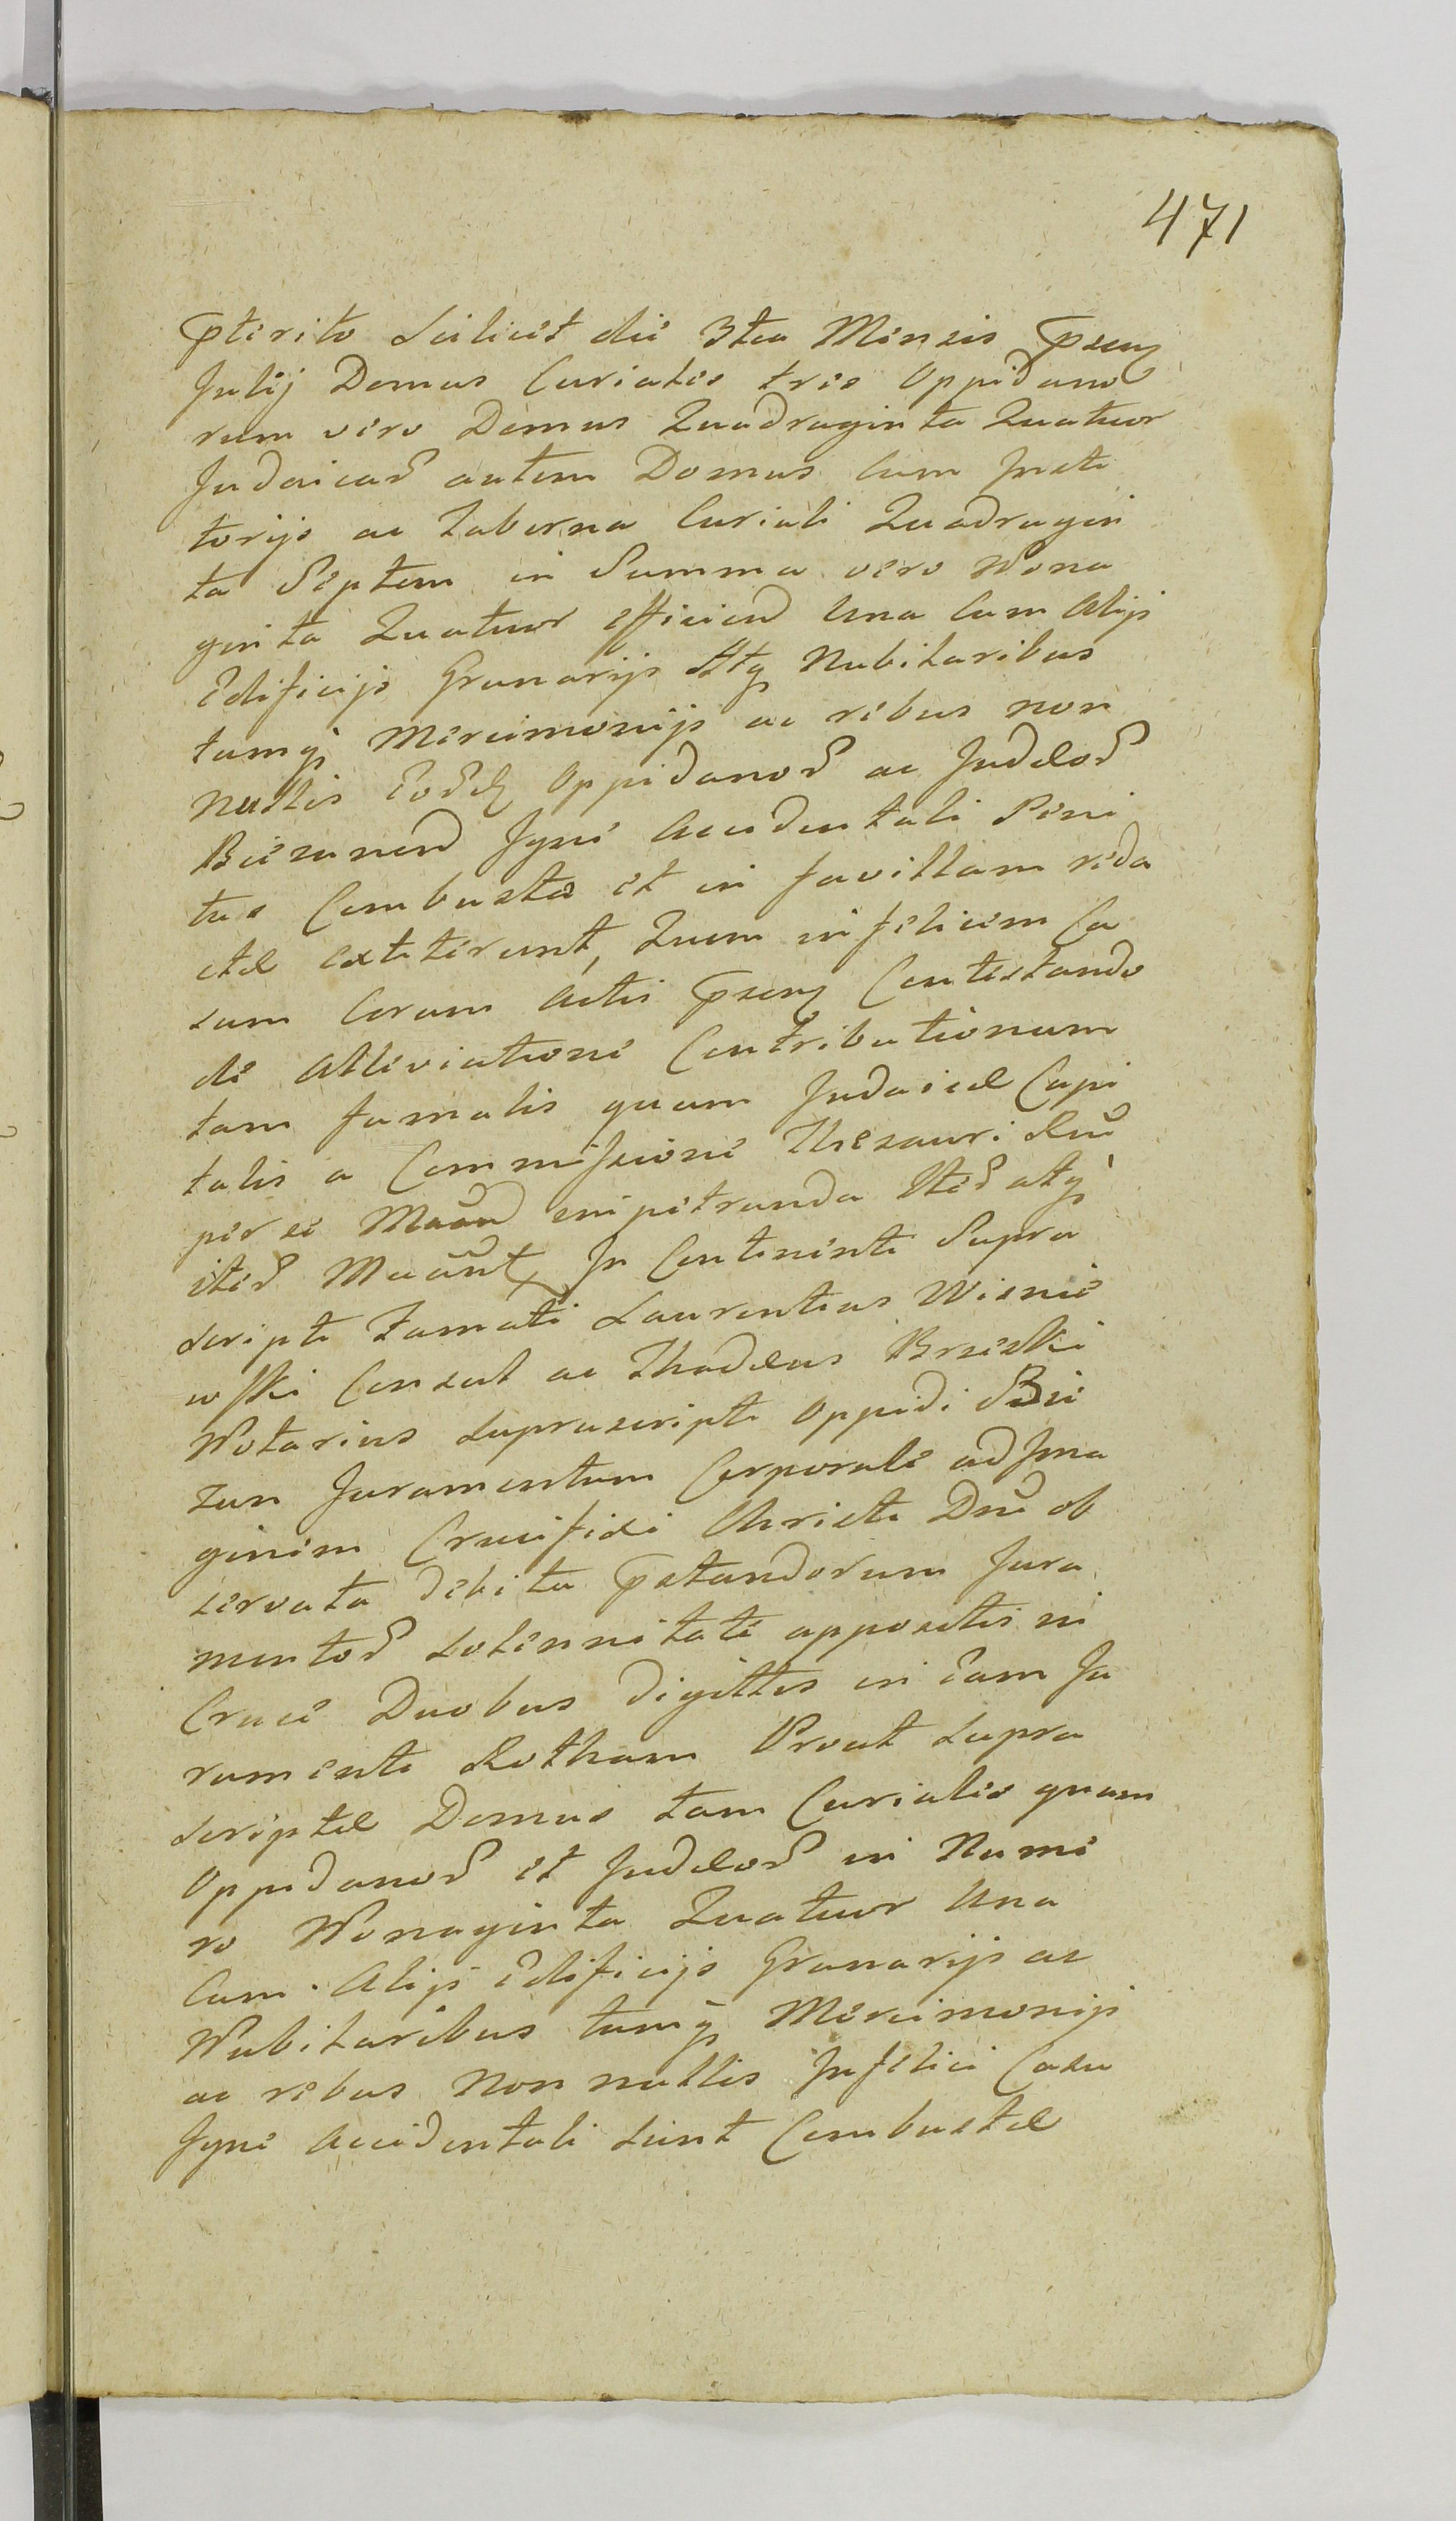 471
Pterito Scilicet die 3tia Mensis Psen
Julij Domus Curiales tres Oppidano
rum vero Domus Quadraginta Quatuor
Judaicar autem Domus Cum
torijs ac Taberna Curiali Quadragin
ta Septem in Summa vero Nona
ginta Quatuor efficien Una Cum Alijs
Edificijs Granarijs Atq Nubilaribus
tumq Mercimonijs ac rebus non
nullis Eor Oppidanor ac Judeor
Biezunen Igne Accidentali Peni
tus Combustae et in favillam reda
ctae extiterunt, Quem infelicem Ca
sum Coram Actis Psen Contestando
de Alleviatione Contributionum
tam fumalis quam Judaicae Capi
talis a Commissione Thesauri
per se impetranda atq
In Continenti Supra
scripti Famati Laurentius Wisnie
wski Consul ac Thadeus Brzeski
Notarius Suprascripti Oppidi Bie
zun Juramentum Corporale ad Ima
ginem Crucifixi Christi Dni ob
servata debita Pstandorum Jura
mentor Solennitate appositis in
Cruce Duobus digittis in Eam Ju
ramenti Rotham Prout Supra
scriptae Domus tam Curiales quam
Oppidanor et Judeor in Nume
ro Nonaginta Quatuor Una
Cum Alijs Edificijs Granarijs ac
Nubilaribus tumq Mercimonijs
ac rebus Non nullis Infelici Casu
Igne Accidentali Sint Combustae